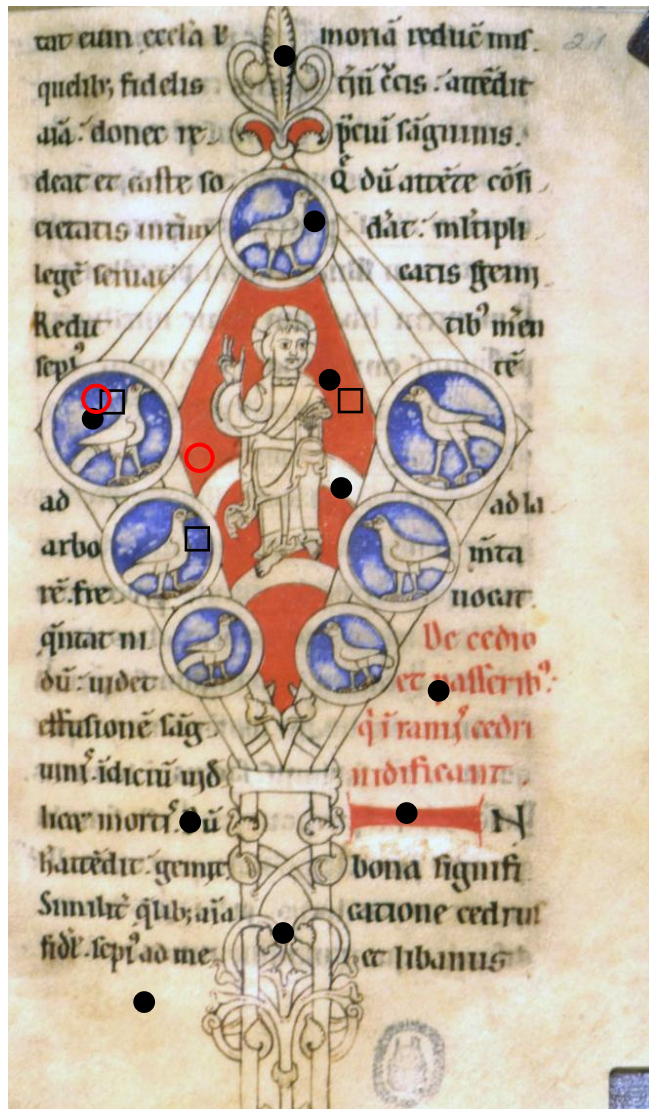 tat eum eccl̄a
quelib; fidelis
aīa. donec re
deat et caste so
cietatis
legē seruat
Redit
sepi⁹
ad
arbo
rē. fre
q̄ntat ni
dū. uidet
effusionē sāg
uini⁹. idiciū
morti⁹. Dū
attēdit. gemit
Similit̄ q̄lib; aīa
sepi⁹ ad me
moriā
attēdit
p̄ciū sāguinis.
Qͥ dū attēte cōsi
dāt. mltipli
catis gem
tib⁹ mēn
tē
ad la
m̄ta
uocat.
De cedro
et passerib⁹.
q̄ ī ramis cedri
nidificant.
IN
bona signifi
catione cedrus
et libanus
21